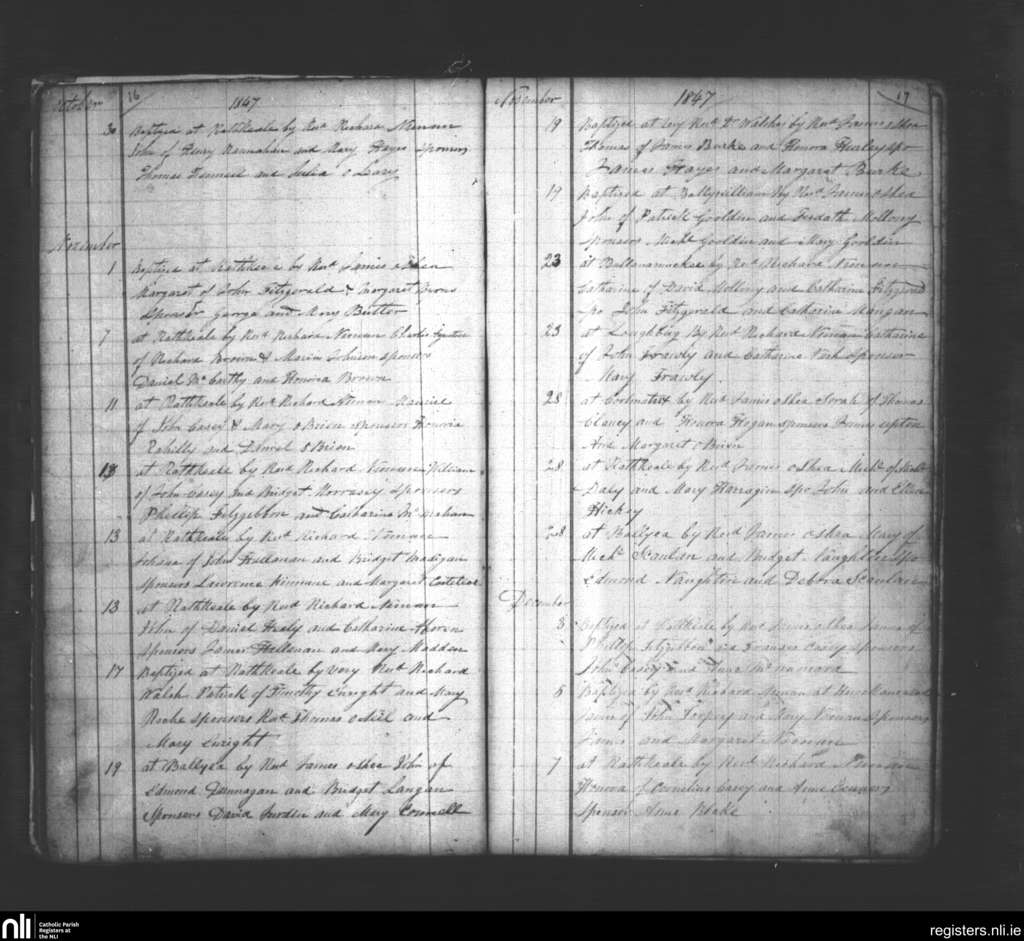 October 16 1847
30 Baptized at Rathkeale by Revd Richard Nienan
John of Henry Hannahan and Mary Hayes Sponsors
Thomas and Julia O Leary
November
1 Baptized at Rathkeale by Revd James O Shea
Margaret of John Fitzgerald & Margaret
Sponsors George and Mary Butler
7 at Rathkeale by Revd Richard Nienan
of Richard Brown & Maria Johnson sponsors
Daniel Mc Carthy and Honora Brown
11 at Rathkeale by Revd Richard Nienan Daniel
of John Casey & Mary O Brien sponsors Honoria
Rahilly and Daniel O Brien
13 at Rathkeale by Revd Richard Nienan William
of John Casey and Bridget Morrssey sponsors
Phillip Fitzgibbon and Catharine Mc mahan
13 at Rathkeale by Revd Richard Nienan
of John Hallanan and Bridget Madigan
sponsors Lawrence and Margaret
13 at Rathkeale by Revd Richard Nienan
John of Daniel Healy and Catharine Aheren
sponsors James Hallanan and Mary Madden
17 Baptized at Rathkeale by very Revd Richard
Walsh Patrick of Timothy Enright and Mary
Roche sponsors Revd Thomas O Niel and
Mary Enright
19 at Ballyea by Revd James O Shea John of
Edmond and Bridget Langan
Sponsors David and Mary Connell
November 1847 17
19 Baptized at very Revd Dr Walshe by Revd James O Shea
Thomas of James Burke and Honora Hurley spo
James Hayes and Margaret Burke
19 Baptized at Ballywilliam by Revd James O Shea
John of Patrick Gooldin and Mollony
sponsors Michl Gooldin and Mary Gooldin
23 at by Revd Richard Nienan
Catharine of David Mollony and Catharine Fitzgerald
spo John Fitzgerald and Catharine Mangan
23 at Loughbeg By Revd Richard Nienan Catharine
of John Frawly and Catharine sponsor
Mary Frawly.
28 at Coolmatrix by Revd James O Shea Sarah of Thomas
Clancy and Honora Hogan sponsors James Upton
And Margaret O Brien
28 at Rathkeale by Revd James O Shea Michl of Michl
Daly and Mary Hanragan Spo John and Ellen
Hickey
28 at Ballyea by Revd James O Shea Mary of
Michl Scanlan and Bridget Naughton spo
Edmond Naughton and Debora Scanlan
December
3 Baptized at Rathkeale by Revd James O Shea James of
Phillip Fitzgibbon and Frances Casey sponsors
John Casey and Anne Mc namara
5 Baptized by Revd Richard Nienan at
James of John and Mary Noonan sponsors
James and Margaret Noonan
7 at Rathkeale by Revd Richard Nienan
Honora of Cornelius Casey and Anne
Sponsor Anne Blake
nli Catholic Parish
Registers at
the NLI
registers.nli.ie